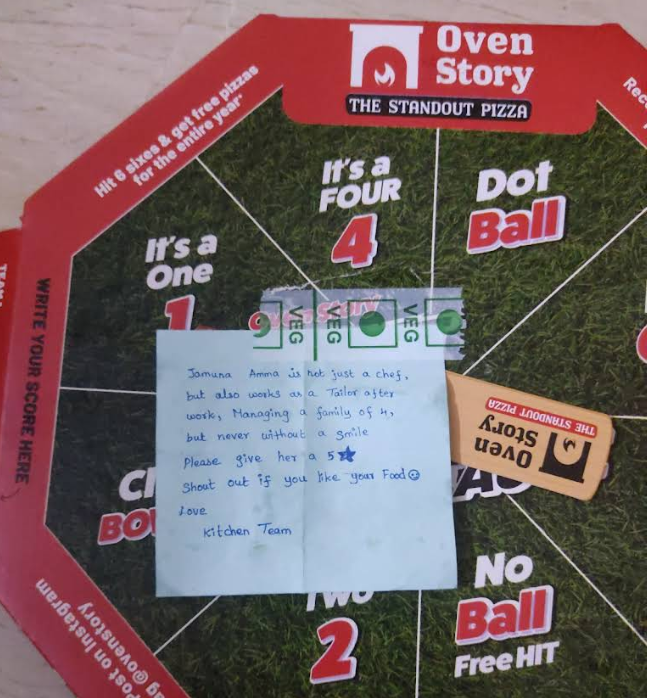 Oven
Story
THE STANDOUT PIZZA
Hit 6 sixes & get free pizzas
for the entire year*
It's a
FOUR
4
Dot
Ball
It's a
One
1
WRITE YOUR SCORE HERE
VEG
VEG
VEG
Jamuna Amma is not just a chef,
but also works as a Tailor after
work, Managing a family of 4,
but never without a smile
Please give her a 5★
Shout out if you like your Food☺
Love
Kitchen Team
Oven
Story
THE STANDOUT PIZZA
TWO
2
No
Ball
Free HIT
Post on Instagram
@ovenstory